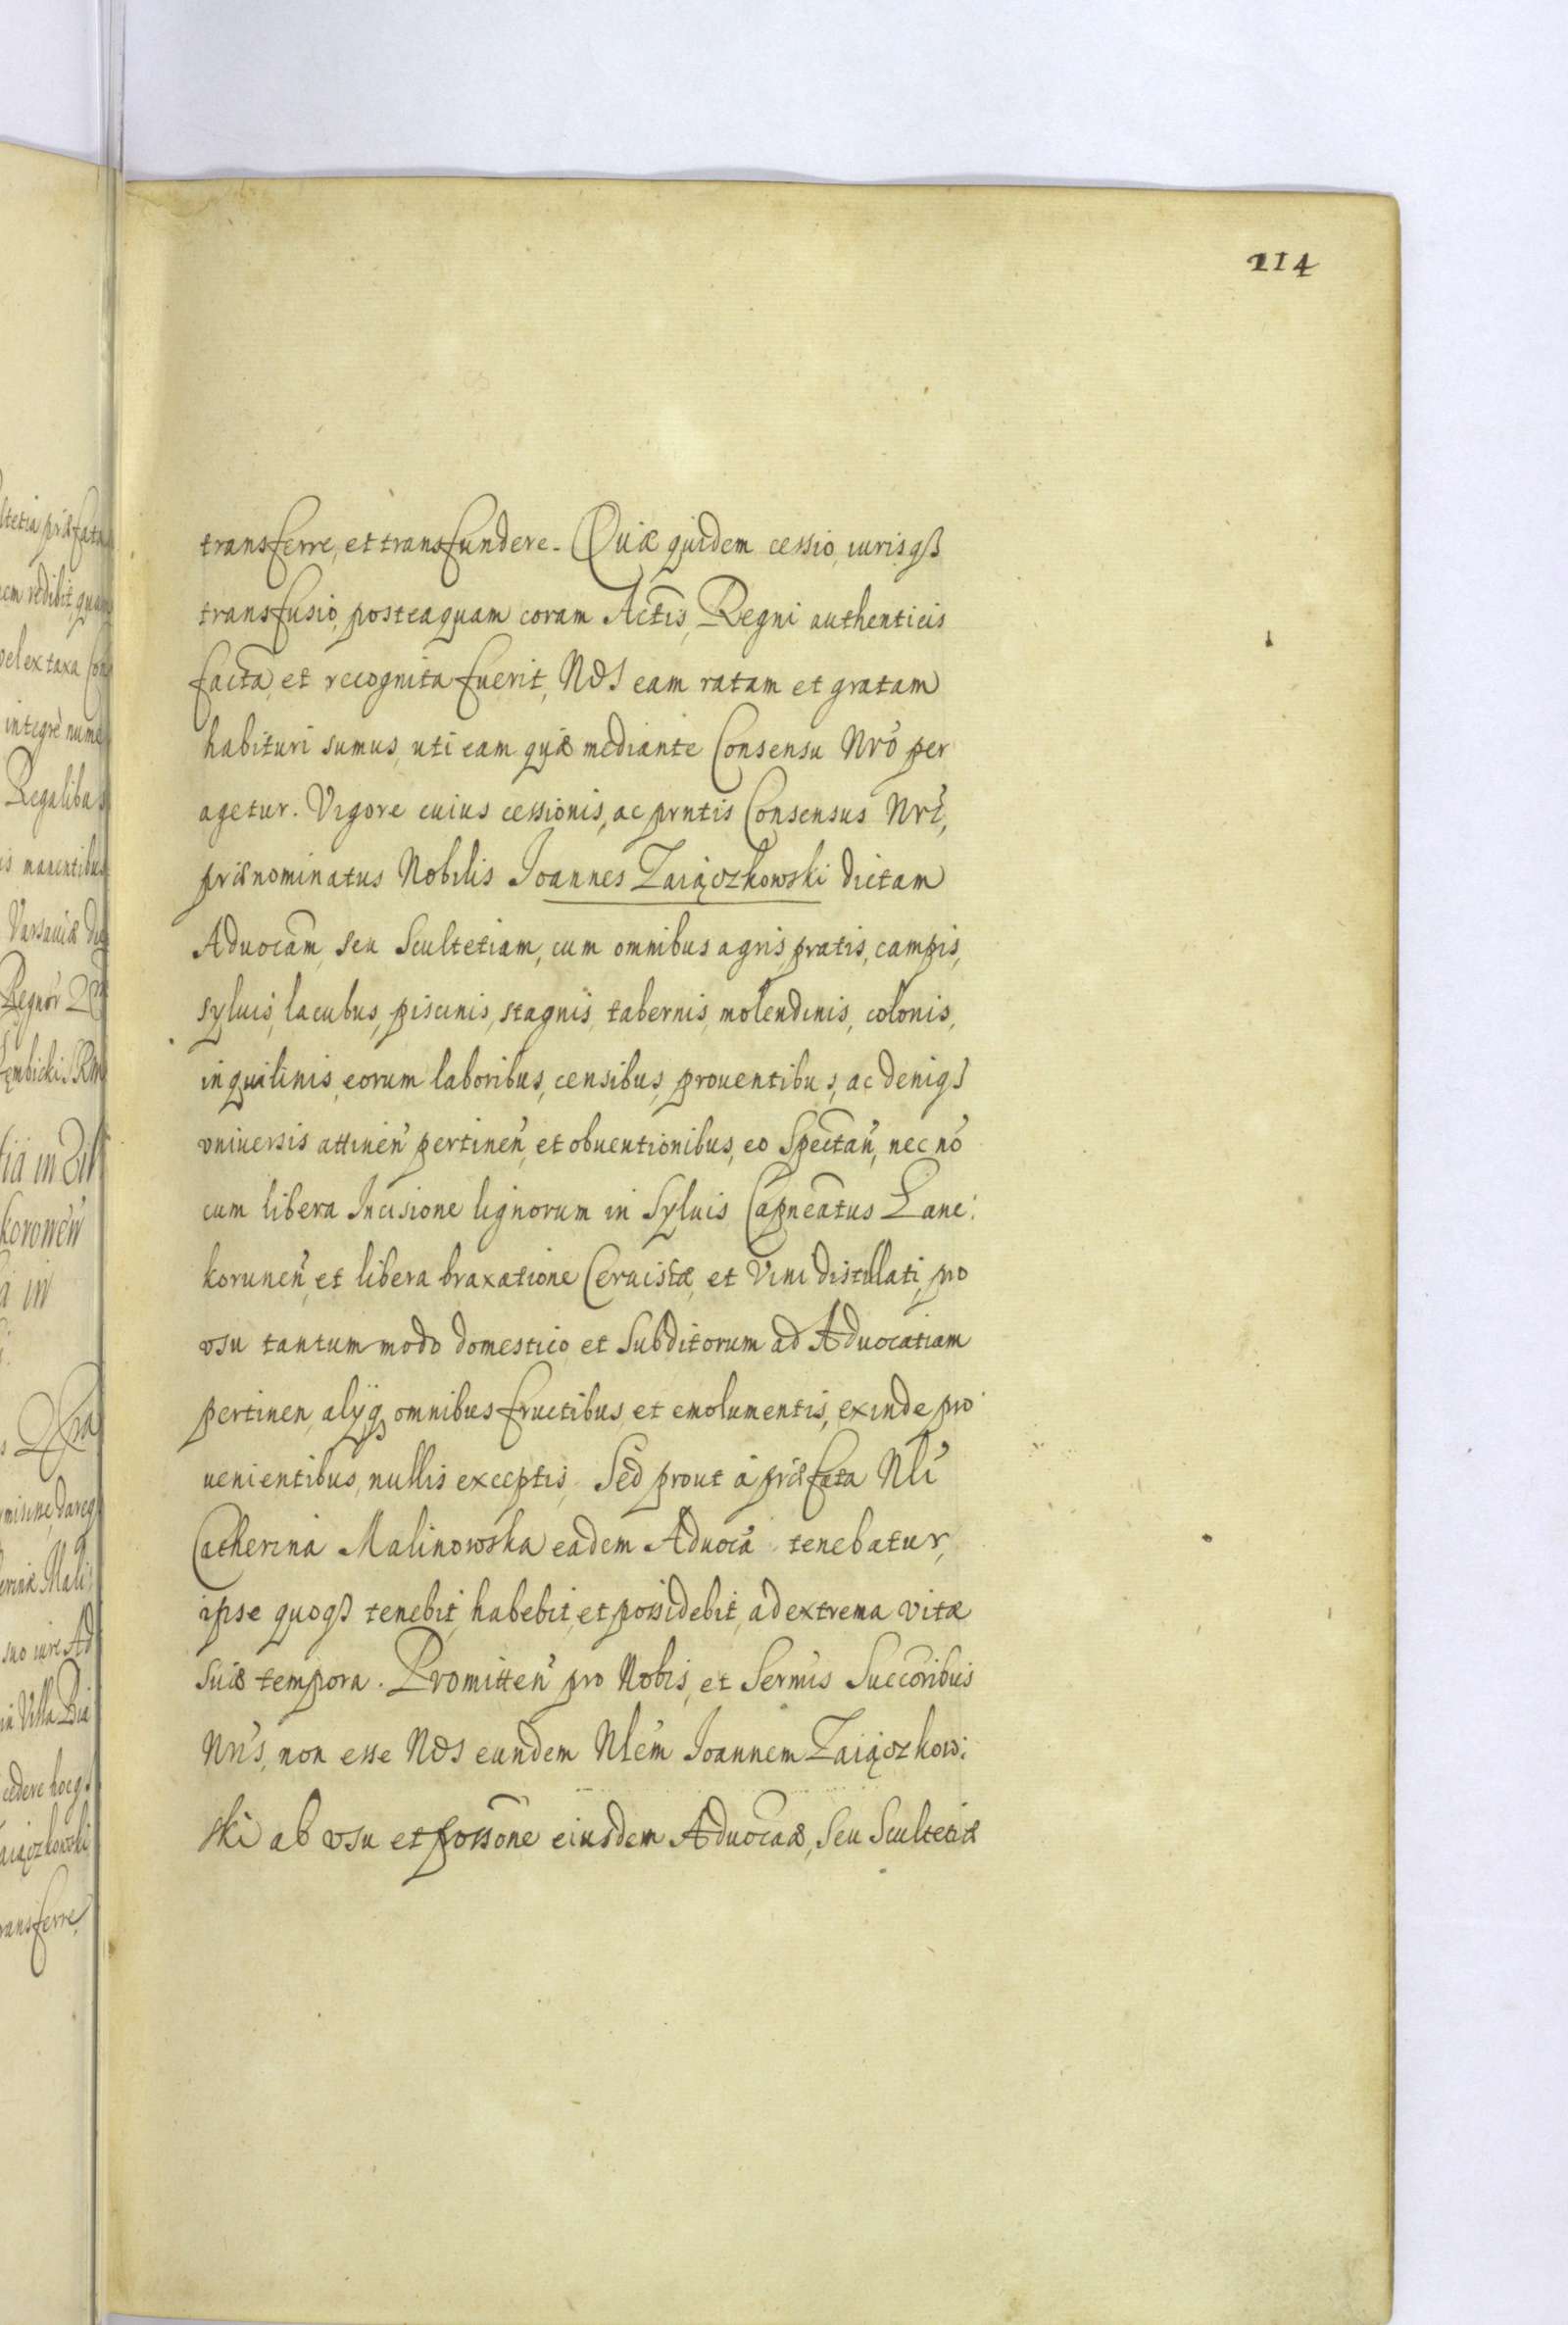 114
transferre, et transfundere. Quæ quidem cessio, iurisqß
transfusio, posteaquam coram Actis Regni authenticis
facta, et recognita fuerit, Nos eam ratam et gratam
habituri sumus, uti eam quæ mediante Consensu Nrō per
agetur. Vigore cuius cessionis, ac prntis Consensus Nrī,
prænominatus Nobilis Joannes Zaiączkowski dictam
Aduocām, seu Scultetiam, cum omnibus agris, pratis, campis,
syluis, lacubus, piscinis, stagnis, tabernis, molendinis, colonis,
inquilinis, eorum laboribus, censibus, prouentibus, ac deniqß
vniuersis attinēn pertinēn, et obuentionibus, eo Spectān, nec nō
cum libera Incisione lignorum in Syluis Capneatus Lanc:
korunēn, et libera braxatione Ceruisiæ, et Vini distillati, pro
vsu tantummodo domestico et Subditorum ad Aduocatiam
pertinen, alijqß omnibus fructibus, et emolumentis, exinde pro
uenientibus, nullis exceptis, Sed prout à præfata Nlī
Catherina Malinowska eadem Aduocā tenebatur,
ipse quoqß tenebit, habebit, et possidebit, ad extrema vitæ
suæ tempora. Promittēn pro Nobis, et Sermīs Succoribus
Nrīs, non esse Nos eundem Nlēm Joannem Zaiączkow:
ski ab vsu et possōne eiusdem Aduocāæ, seu Scultetiæ